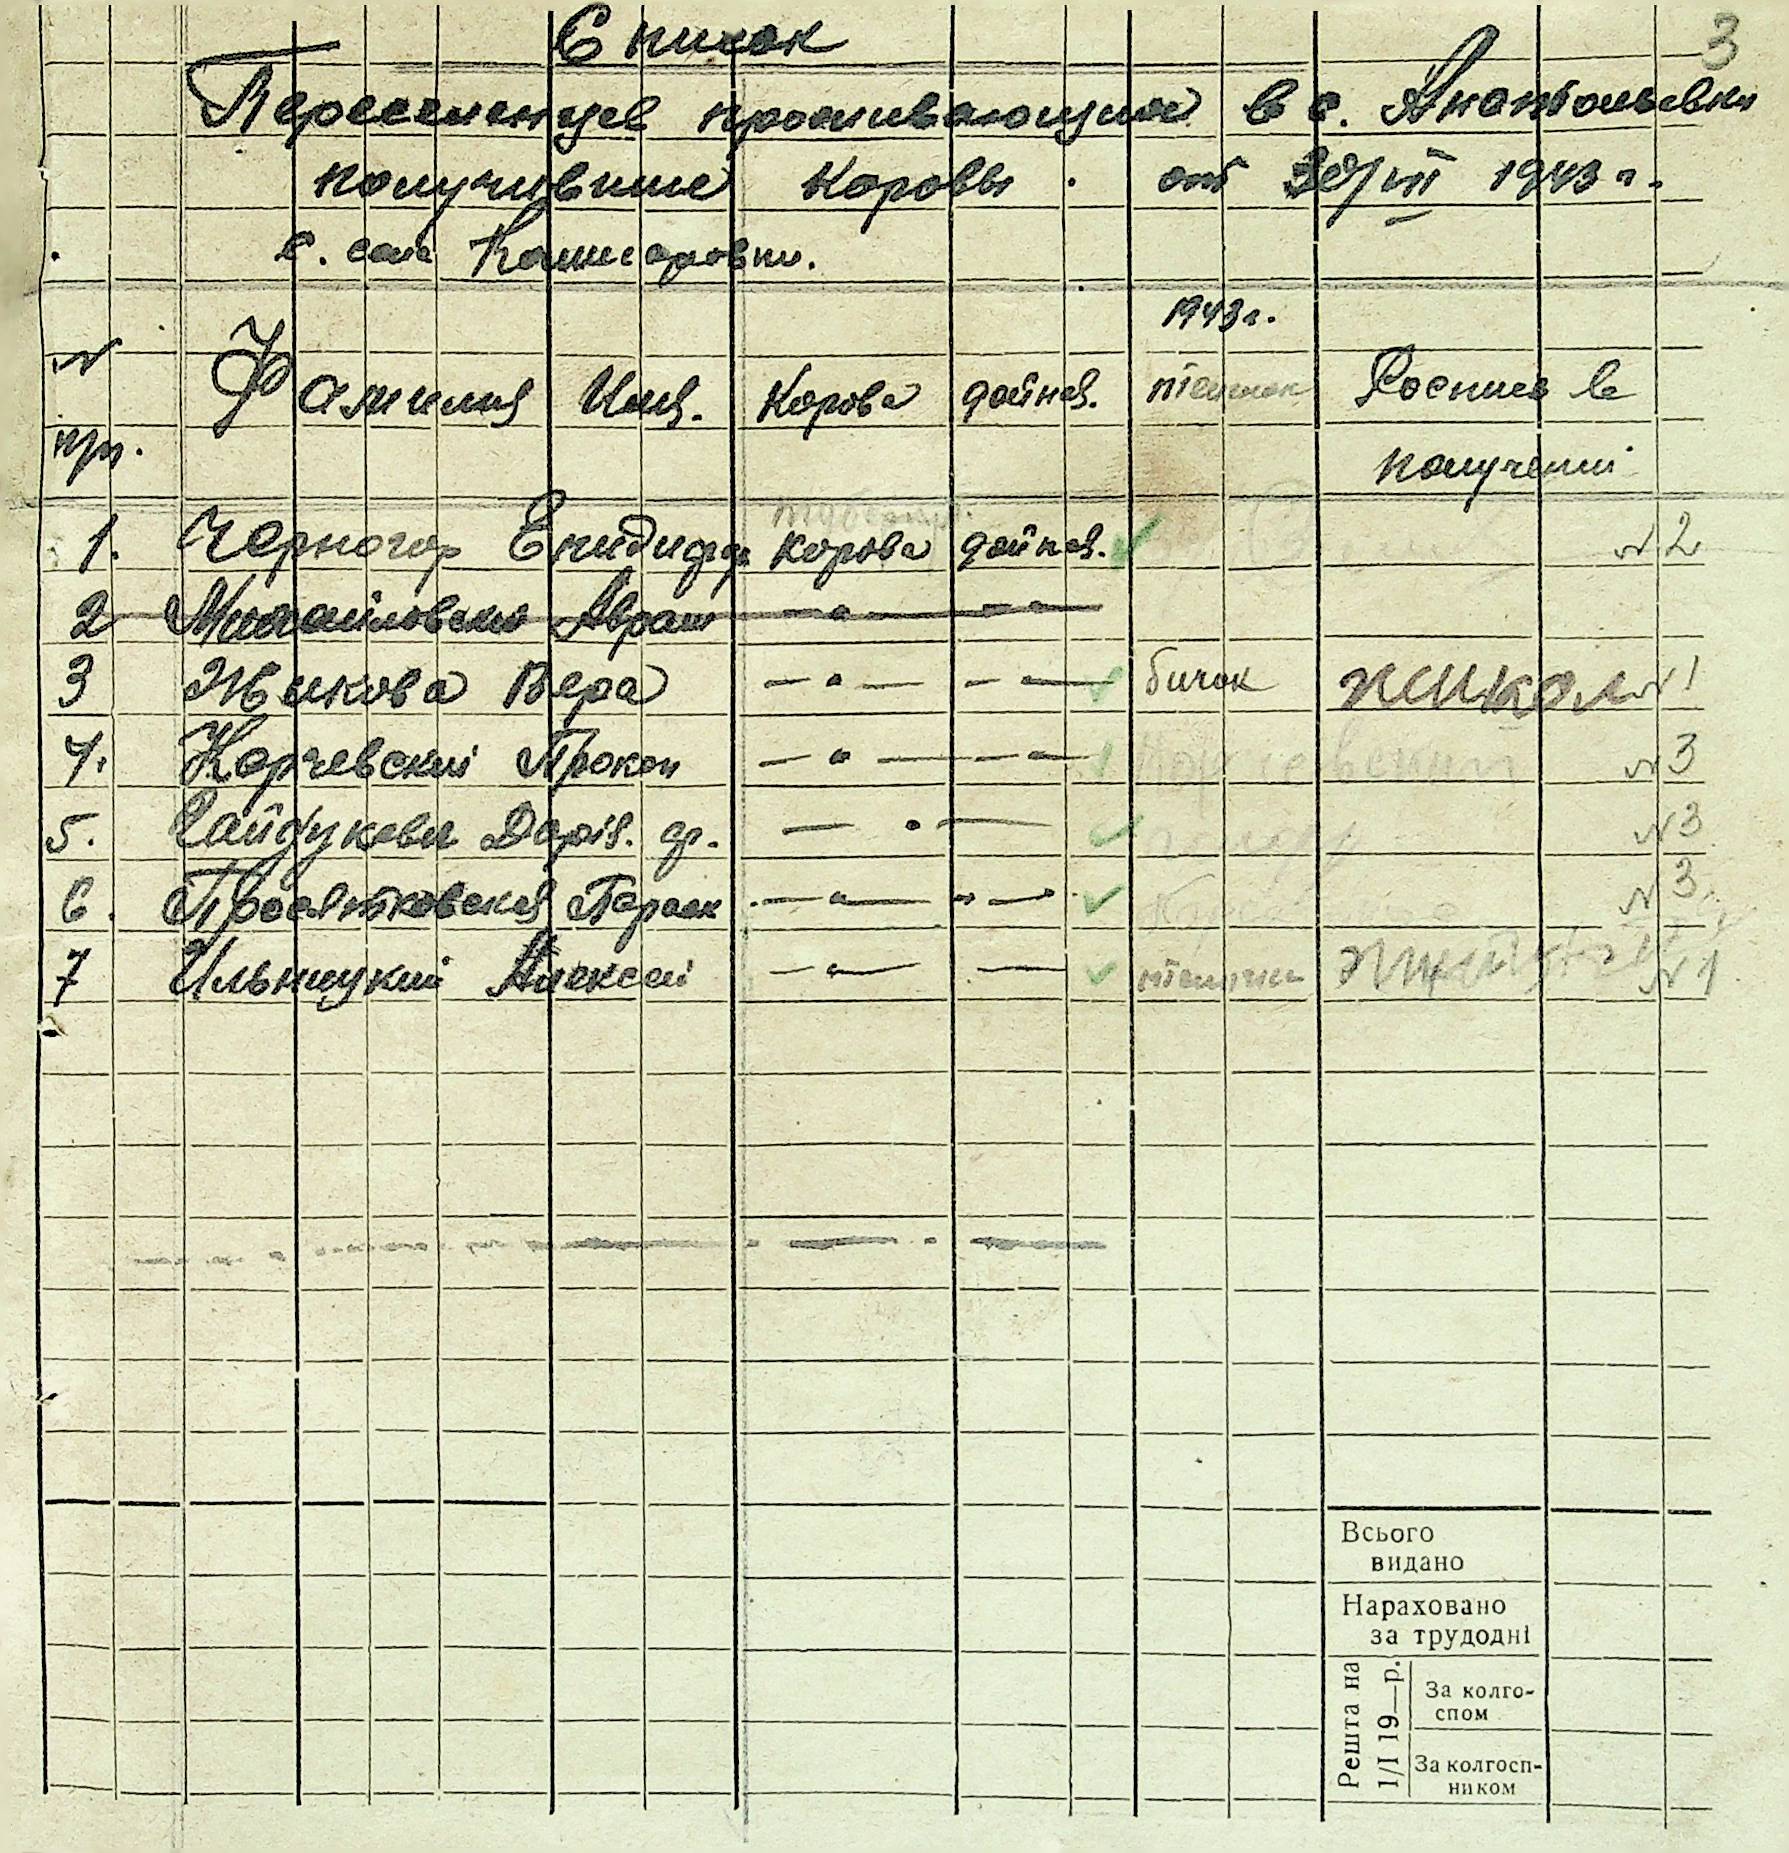 3
Список
Переселенцев проживающих в с. Анатольевки
получивше коровы. от 30/VII 1943 г.
с. села Комисаровки.
1943 г.
N Фамилия Имя. Корова дойная. телят Роспись в
п/п. получении
1. Черногор Епидифор корова дойная. ✓ N 2
2 Михайловский Абрам — " — — " —
3 Жикова Вера — " — — — ✓ бичок жикол N 1
4. Корчевский Прокоп — " — — — ✓ Корчевский N 3
5. Гайдукова Дарія. ф. — " — ✓ N 3
6. Просятковская Параск — " — " — ✓ N 3
7 Ильницкий Алексей — " — — ✓ телички N 1
Всього
видано
Нараховано
за трудодні
Решта на
1/I 19—р.
За колго-
спом
За колгосп-
ником